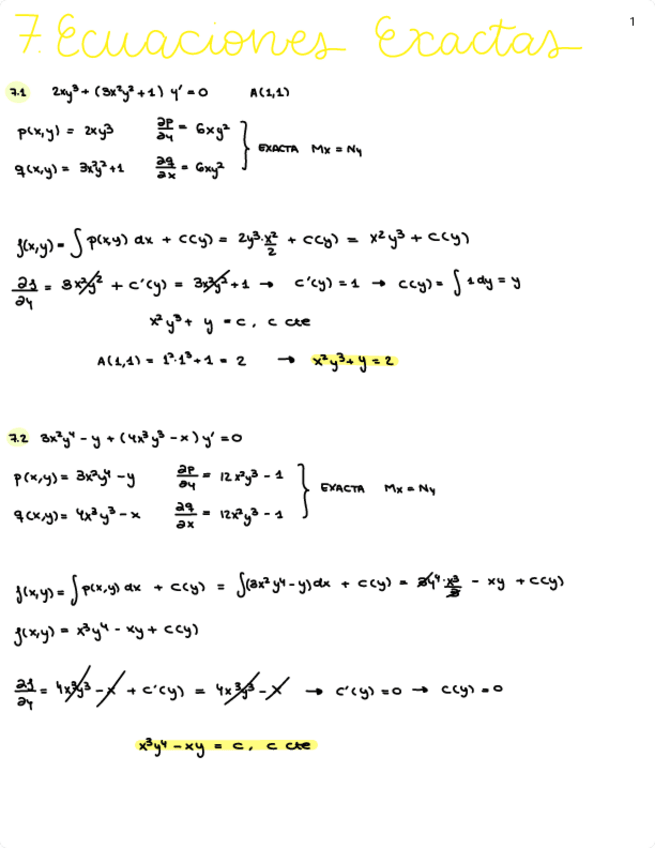 7. Ecuaciones Exactas
1
7.1 2xy³ + (3x²y² + 1) y' = 0 A(1,1)
p(x,y) = 2xy³ ∂p/∂y = 6xy²
EXACTA Mx = Ny
q(x,y) = 3x²y² + 1 ∂q/∂x = 6xy²
f(x,y) = ∫ p(x,y) dx + c(y) = 2y³·x²/2 + c(y) = x²y³ + c(y)
∂f/∂y = 3x²y² + c'(y) = 3x²y² + 1 → c'(y) = 1 → c(y) = ∫ 1 dy = y
x²y³ + y = c, c cte
A(1,1) = 1²·1³ + 1 = 2 → x²y³ + y = 2
7.2 3x²y⁴ - y + (4x³y³ - x) y' = 0
p(x,y) = 3x²y⁴ - y ∂p/∂y = 12x²y³ - 1
EXACTA Mx = Ny
q(x,y) = 4x³y³ - x ∂q/∂x = 12x²y³ - 1
f(x,y) = ∫ p(x,y) dx + c(y) = ∫(3x²y⁴ - y) dx + c(y) = 3y⁴·x³/3 - xy + c(y)
f(x,y) = x³y⁴ - xy + c(y)
∂f/∂y = 4x³y³ - x + c'(y) = 4x³y³ - x → c'(y) = 0 → c(y) = 0
x³y⁴ - xy = c, c cte